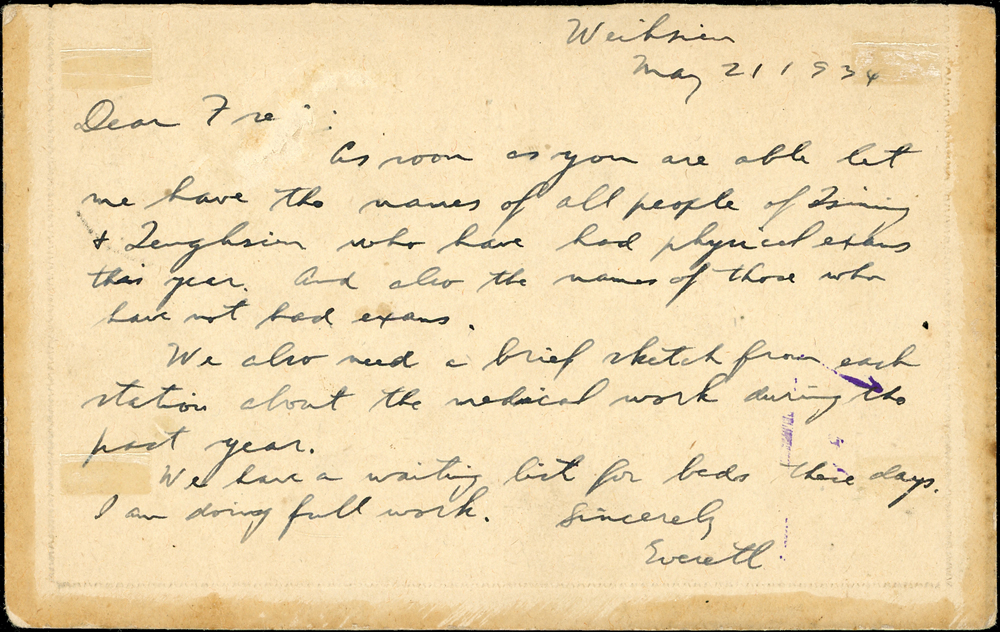 Weihsien
May 21 1934
Dear Fre
As soon as you are able let
me have the names of all people of Tsining
& Tenghsien who have had physical exams
this year. And also the names of those who
have not had exams.
We also need a brief sketch from each
station about the medical work during the
past year.
We have a waiting list for beds these days.
I am doing full work. Sincerely
Everett